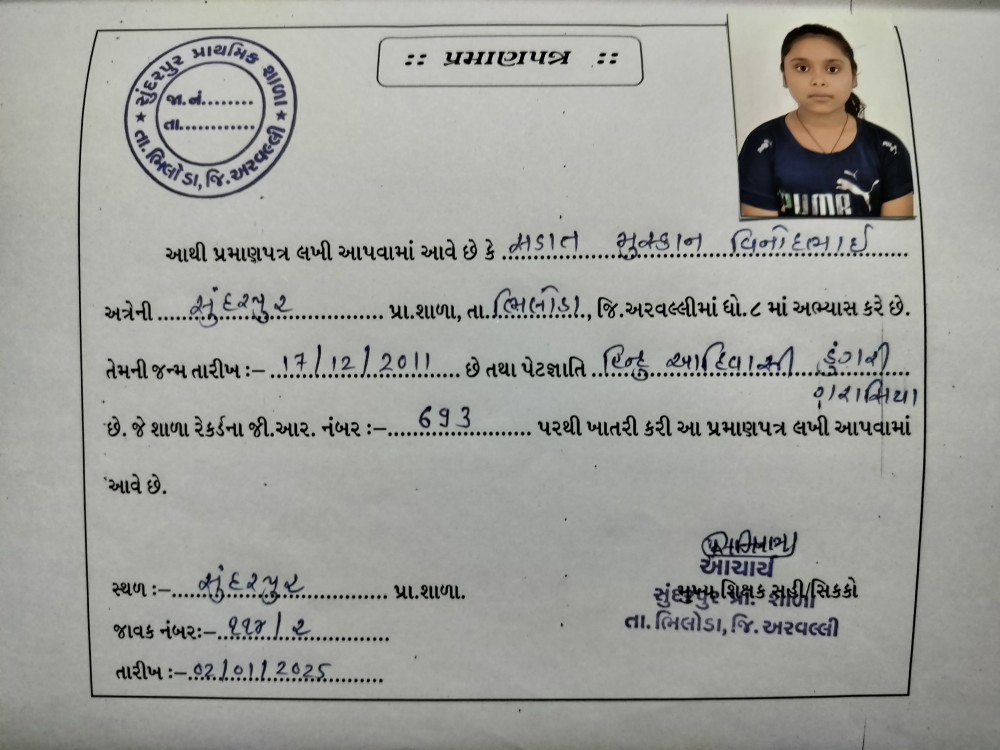 સુંદરપુર પ્રાથમિક શાળા
જા.નં.........
તા............
★ તા.ભિલોડા, જિ.અરવલ્લી ★
:: પ્રમાણપત્ર ::
PUMA
આથી પ્રમાણપત્ર લખી આપવામાં આવે છે કે મડાત મુસ્કાન વિનોદભાઈ
અત્રેની સુંદરપુર પ્રા.શાળા, તા. ભિલોડા, જિ.અરવલ્લીમાં ધો.૮ માં અભ્યાસ કરે છે.
તેમની જન્મ તારીખ :– 17/12/2011 છે તથા પેટાજ્ઞાતિ હિન્દુ આદિવાસી ડુંગરી
ગરાસિયા
છે. જે શાળા રેકર્ડના જી.આર. નંબર :– 693 પરથી ખાતરી કરી આ પ્રમાણપત્ર લખી આપવામાં
આવે છે.
આચાર્ય
સ્થળ :– સુંદરપુર પ્રા.શાળા.
મુખ્ય શિક્ષક સહી/સિક્કો
સુંદરપુર પ્રા. શાળા
તા. ભિલોડા, જિ. અરવલ્લી
જાવક નંબરઃ– ૧૧૪/૨
તારીખ :– 02/01/2025